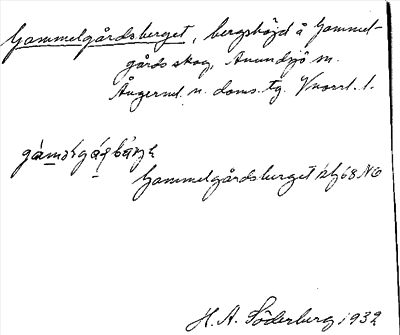 Gammelgårdsberget, bergshöjd å Gammel-
gårds skog, Anundsjö sn.
Ångerml. n. doms. tg. Vnorrl. l.
Gammelgårdsberget
H. A. Söderberg 1932